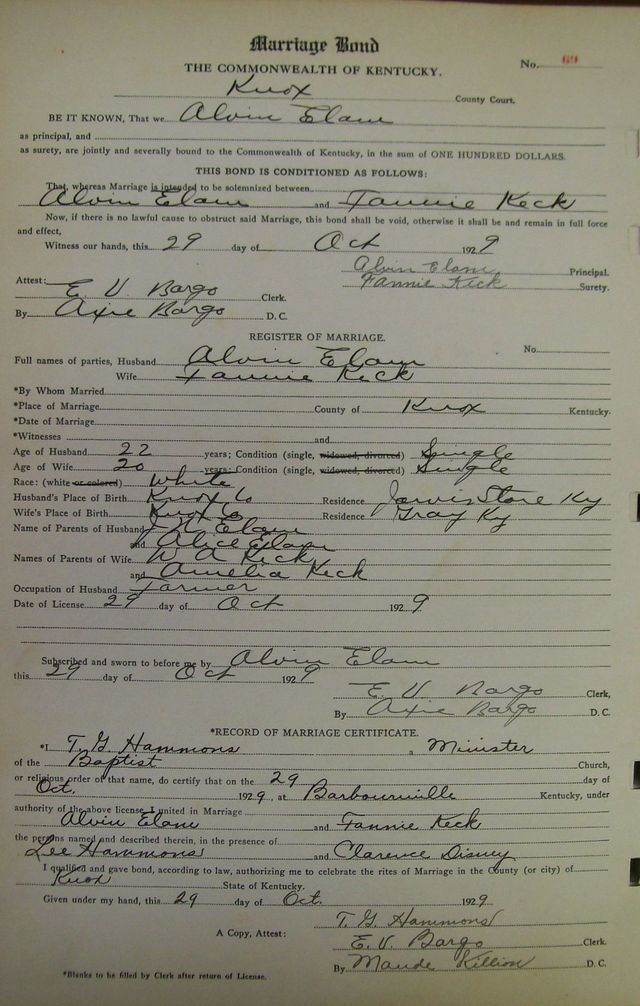 Marriage Bond
No. 69
THE COMMONWEALTH OF KENTUCKY.
Knox County Court.
BE IT KNOWN, That we Alvin Elam
as principal, and
as surety, are jointly and severally bound to the Commonwealth of Kentucky, in the sum of ONE HUNDRED DOLLARS.
THIS BOND IS CONDITIONED AS FOLLOWS:
That, whereas Marriage is intended to be solemnized between
Alvin Elam and Fannie Keck
Now, if there is no lawful cause to obstruct said Marriage, this bond shall be void, otherwise it shall be and remain in full force
and effect,
Witness our hands, this 29 day of Oct 1929
Alvin Elam Principal.
Fannie Keck Surety.
Attest: E. V. Bargo Clerk.
By Axie Bargo D. C.
REGISTER OF MARRIAGE.
No.
Full names of parties, Husband Alvin Elam
Wife Fannie Keck
*By Whom Married
*Place of Marriage County of Knox Kentucky.
*Date of Marriage
*Witnesses and
Age of Husband 22 years; Condition (single, widowed, divorced) Single
Age of Wife 20 years; Condition (single, widowed, divorced) Single
Race: (white or colored) White
Husband's Place of Birth Knox Co Residence Jarvis Store Ky
Wife's Place of Birth Knox Co Residence Gray Ky
Name of Parents of Husband Elam
and Alice Elam
Names of Parents of Wife W A Keck
and Amelia Keck
Occupation of Husband Farmer
Date of License 29 day of Oct 1929
Subscribed and sworn to before me by Alvin Elam
this 29 day of Oct 1929
E. V Bargo Clerk,
By Axie Bargo D. C.
*RECORD OF MARRIAGE CERTIFICATE.
*I T. G. Hammons a Minister
of the Baptist Church,
or religious order of that name, do certify that on the 29 day of
Oct. 1929, at Barbourville Kentucky, under
authority of the above license I united in Marriage
Alvin Elam and Fannie Keck
the persons named and described therein, in the presence of
Lee Hammons and Clarence Disney
I qualified and gave bond, according to law, authorizing me to celebrate the rites of Marriage in the County (or city) of
Knox State of Kentucky.
Given under my hand, this 29 day of Oct. 1929
T. G. Hammons
A Copy, Attest: E. V. Bargo Clerk.
By Maude Killion D. C.
*Blanks to be filled by Clerk after return of License.